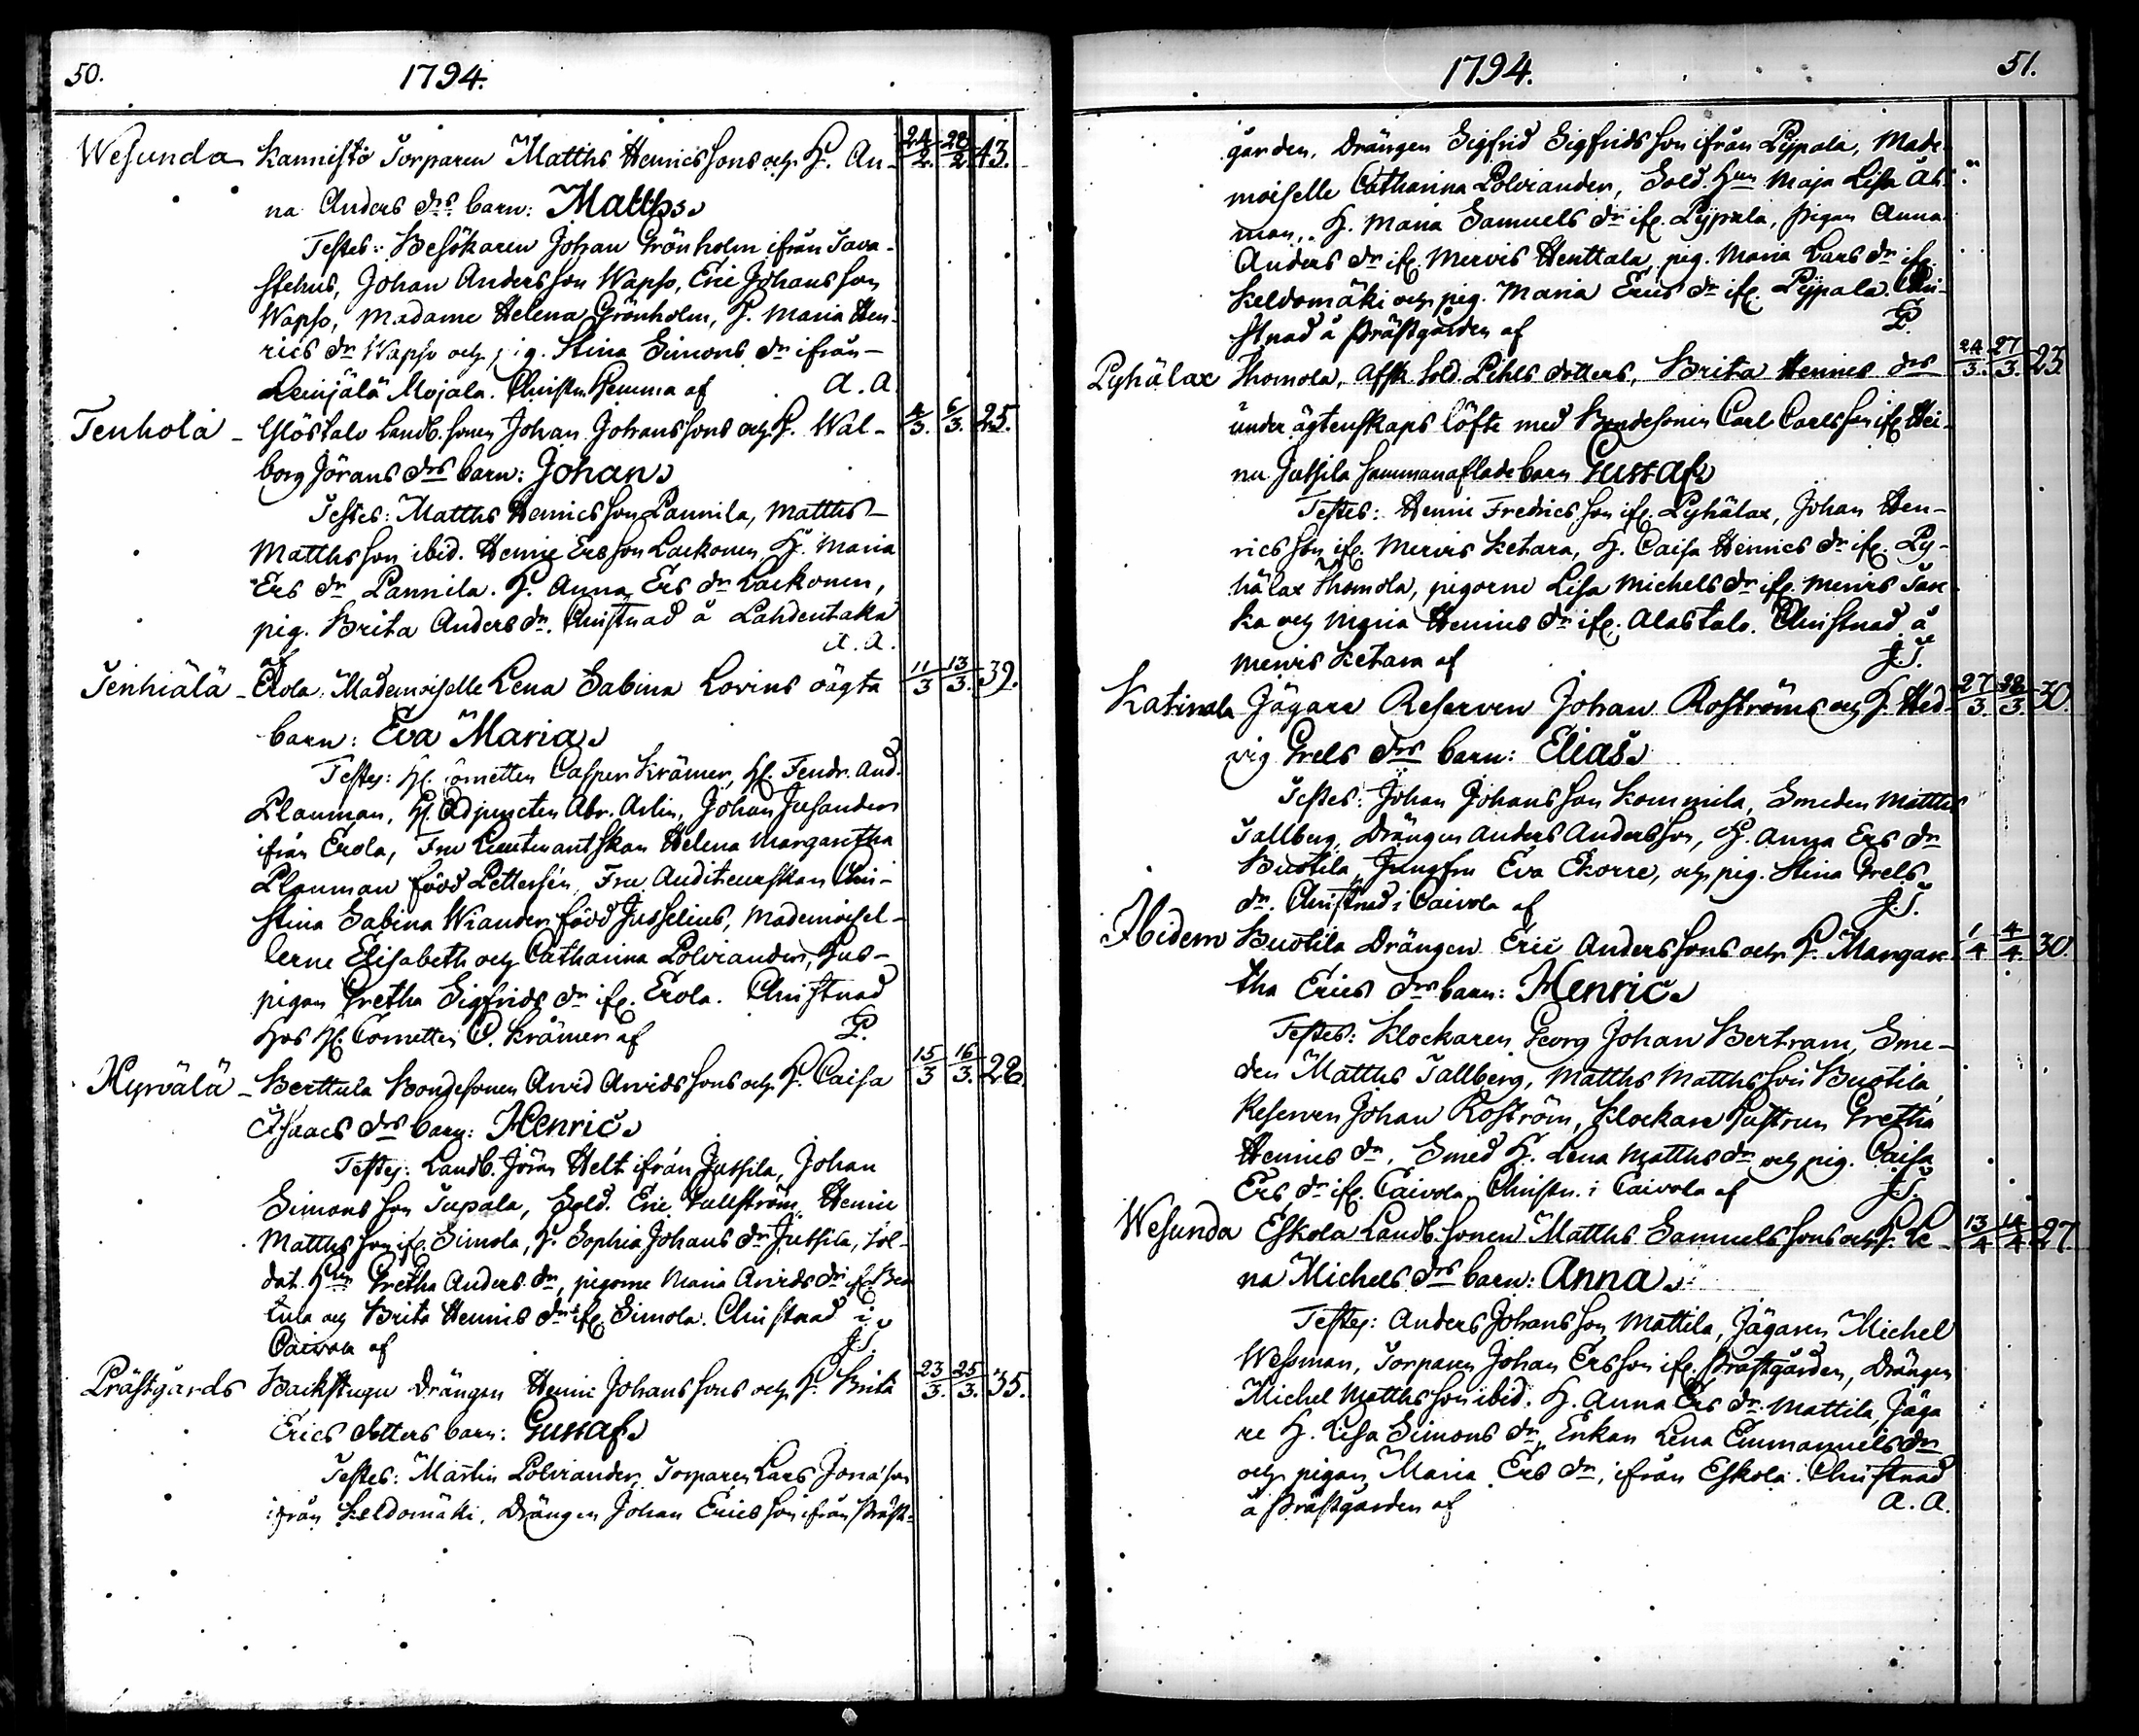 50. 1794.
Wesunda Kannistö Torparen Matths Henricssons och H. An- 24/2. 28/2. 43.
na Anders drs barn: Matths
Testes: Besökaren Johan Grönholm ifrån Tava-
stehus, Johan Andersson Wapso, Eric Johansson
Wapso, Madame Helena Grönholm, H. Maria Hen-
rics dr Wapso och pig. Stina Simons dr ifrån
Leinjälä Mojala. Christn. hemma af A. A.
Tenhola Ylöstalo Landb. sonen Johan Johanssons och H. Wal- 4/3. 6/3. 25.
borg Jörans drs barn: Johan
Testes: Matths Henricsson Pannila, Matths
Matthsson ibid. Henric Ersson Laekonen, H. Maria
Ers dr Pannila. H. Anna Ers dr Laekonen,
pig. Brita Anders dr. Christnad å Lahdentaka
af A. A.
Tenhiälä Erola Mademoiselle Lena Sabina Lovins oägta 11/3 13/3. 39.
barn: Eva Maria
Testes: H. Cornetten Casper Krämer, H. Fendr. And.
Plauman, H. Adjuncten Abr. Arlin, Johan Jusander
ifrån Erola, Fru Lieutenantskan Helena Margaretha
Plauman född Pettersén, Fru Auditeurskan Chri-
stina Sabina Wiander född Jusselius, Mademoisel-
lerne Elisabeth och Catharina Polviander, Hus-
pigan Gretha Sigfrids dr ifr. Erola. Christnad
hos H. Cornetten C. Krämer af P.
Hyrvälä Berttula Bondesonen Arvid Arvidssons och H. Caisa 15/3 16/3. 28.
Isaacs drs barn: Henric
Testes: Landb. Jöran Helt ifrån Jutsila, Johan
Simonsson Tupala, Sold. Eric Gullström, Henric
Matthsson ifr. Simola, H. Sophia Johans dr Jutsila, Sol-
dat. Hun Gretha Anders dr, pigorne Maria Arvids dr ifr. Ber
tula och Brita Henrics dr ifr. Simola. Christnad i
Caivola af J. T.
Prästgårds Backstugu Drängen Henric Johanssons och H. Brita 23/3. 25/3. 35.
Erics dotters barn: Gustaf
Testes: Martin Polviander, Torparen Lars Jonasson
ifrån Keldomäki, Drängen Johan Ericsson ifrån Präst-
1794. 51.
gården, Drängen Sigfrid Sigfridsson ifrån Pyppala, Made-
moiselle Catharina Polviander, Sold. Hun Maja Lisa Åk-
man, H. Maria Samuels dr ifr. Pyppala, Pigan Anna
Anders dr ifr. Mervis Henttala, pig. Maria Lars dr ifr.
Keldomäki och pig. Maria Erics dr ifr. Pyppala. Chri-
stnad å Prästgården af P.
Pyhälax Thomola, Afsk. Sold. Pihls dotters, Brita Henrics drs 24/3. 27/3. 23.
under ägtenskaps löfte med Bondesonen Carl Carlsson ifr. Hei-
nu Jutsila sammanaflade barn Gustaf
Testes: Henric Fredricsson ifr. Pyhälax, Johan Hen-
ricsson ifr. Mervis Ketara, H. Caisa Henrics dr ifr. Py-
hälax Thomola, pigorne Lisa Michels dr ifr. Mervis Tas-
ka och Maria Henrics dr ifr. Alastalo. Christnad å
Mervis Ketara af J. T.
Katinala Jägare Reserven Johan Roströms och H. Hed- 27/3. 28/3. 30.
vig Grels drs barn: Elias
Testes: Johan Johansson Kommila, Smeden Matths
Tallberg, Drängen Anders Andersson, H. Anna Ers dr
Buotila, Jungfru Eva Ekorre, och pig. Stina Grels
dr. Christnad i Caivola af J. T.
Ibidem Buotila Drängen Eric Anderssons och H. Margare- 1/4 4/4. 30.
tha Erics drs barn: Henric
Testes: Klockaren Georg Johan Bertram, Sme-
den Matths Tallberg, Matths Matthsson Buotila,
Reserven Johan Roström, Klockare Hustrun Gretha
Henrics dr, Smed H. Lena Matths dr och pig. Caisa
Ers dr ifr. Caivola. Christn. i Caivola af J. T.
Wesunda Eskola Landb. sonen Matths Samuelssons och H. Le- 13/4 14/4 27.
na Michels drs barn: Anna
Testes: Anders Johansson Mattila, Jägaren Michel
Wesman, Torparen Johan Ersson ifr. Prästgården, Drängen
Michel Matthsson ibid. H. Anna Ers dr. Mattila, Jäga
re H. Lisa Simons dr, Enkan Lena Emmanuels dr
och pigan Maria Ers dr, ifrån Eskola. Christnad
å Prästgården af A. A.